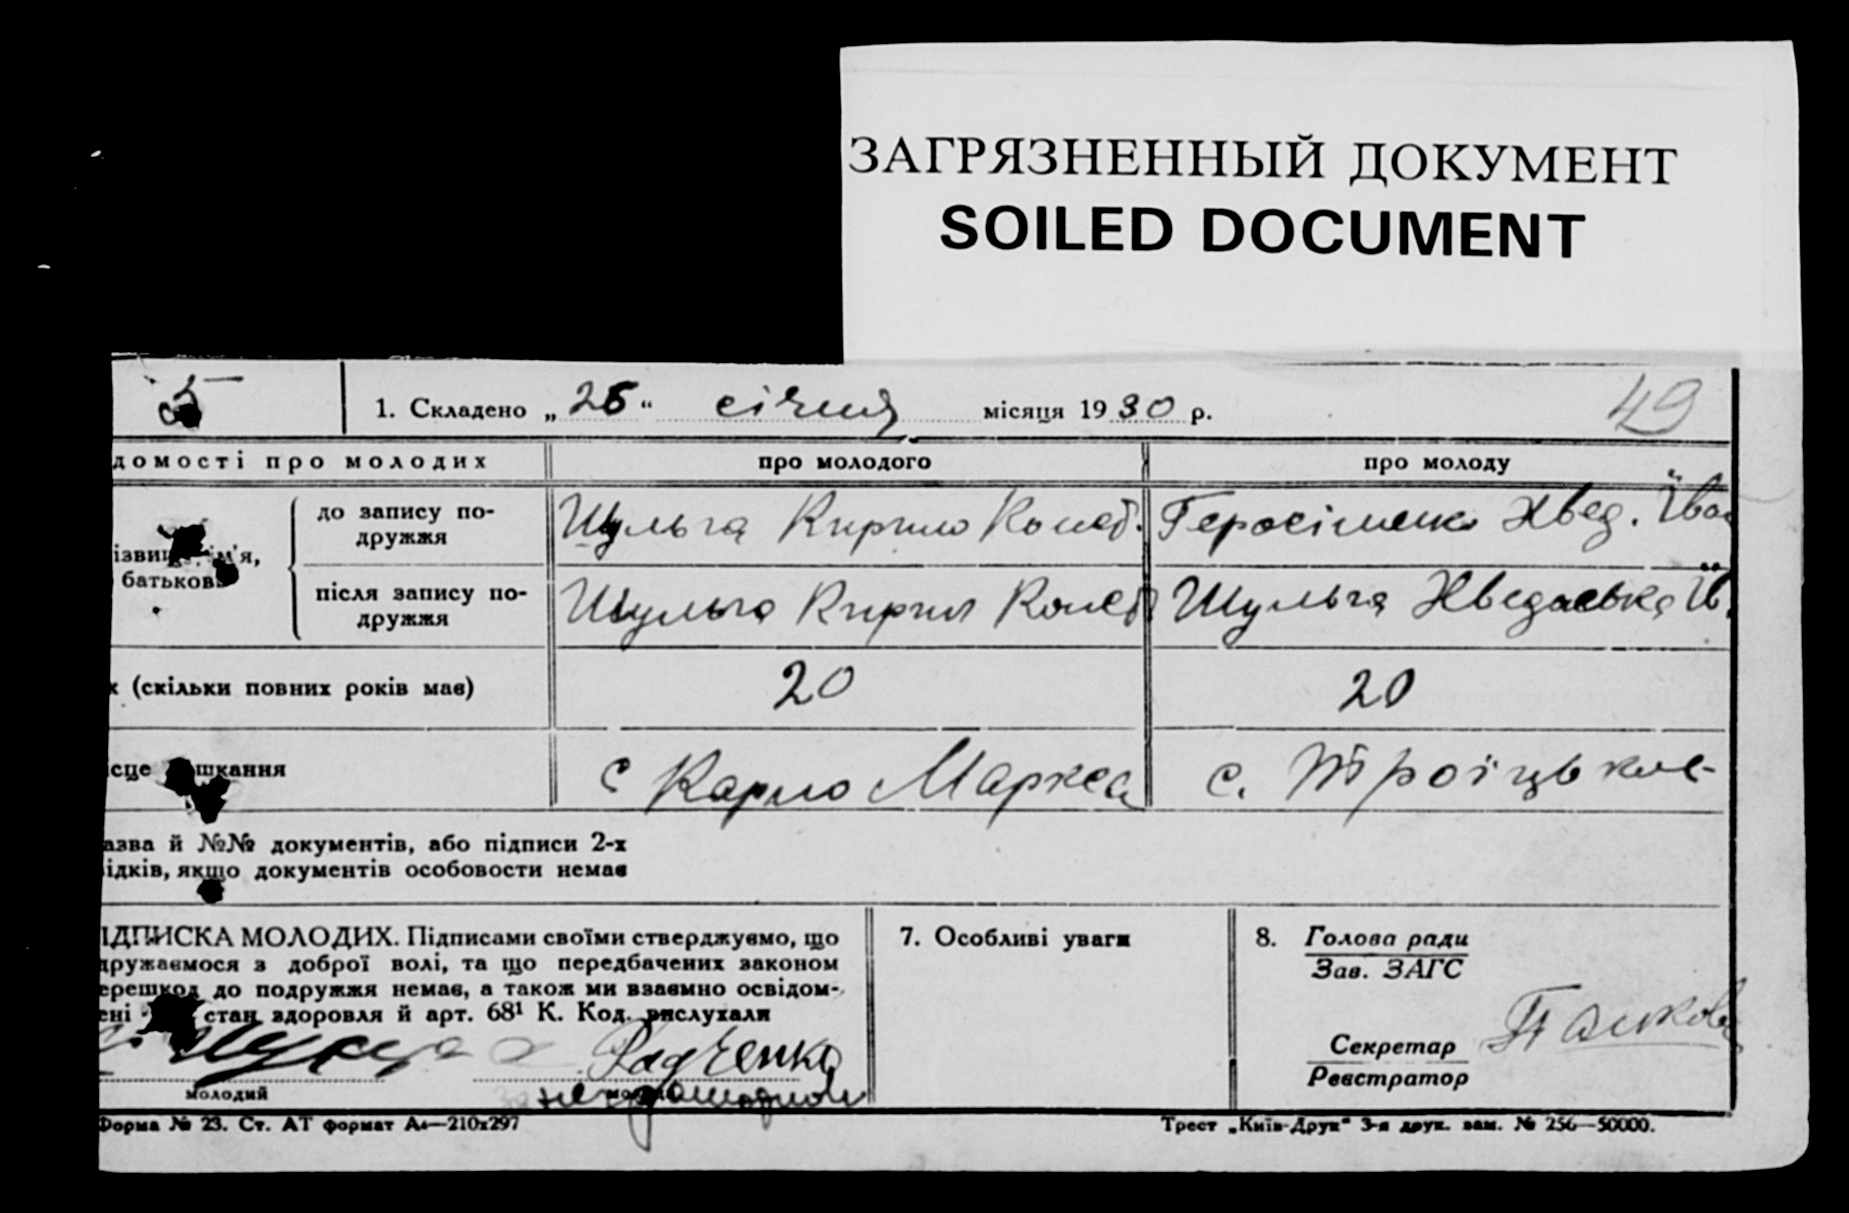 ЗАГРЯЗНЕННЫЙ ДОКУМЕНТ
SOILED DOCUMENT
5
1. Складено „26“ січня місяця 1930 р.
49
домості про молодих
про молодого
про молоду
ізвище, ім'я,
батькові
до запису по-
дружжя
Шульга Кирило
Герасіменко Хвед. Іван
після запису по-
дружжя
Шульга Кирил
Шульга Хведаська Ів.
х (скільки повних років має)
20
20
ісце мешкання
с Карло Маркса
с. Троїцьке
азва й №№ документів, або підписи 2-х
ідків, якщо документів особовости немає
ІДПИСКА МОЛОДИХ. Підписами своїми стверджуємо, що
дружаємося з доброї волі, та що передбачених законом
ерешкод до подружжя немає, а також ми взаємно освідом-
ені стан здоровля й арт. 68¹ К. Код. вислухали
Радченко
молодий
7. Особливі уваги
8. Голова ради
Зав. ЗАГС
Секретар
Реєстратор
Форма № 23. Ст. АТ формат А4—210х297
Трест „Київ-Друк“ 3-я друк. зам. № 256—50000.